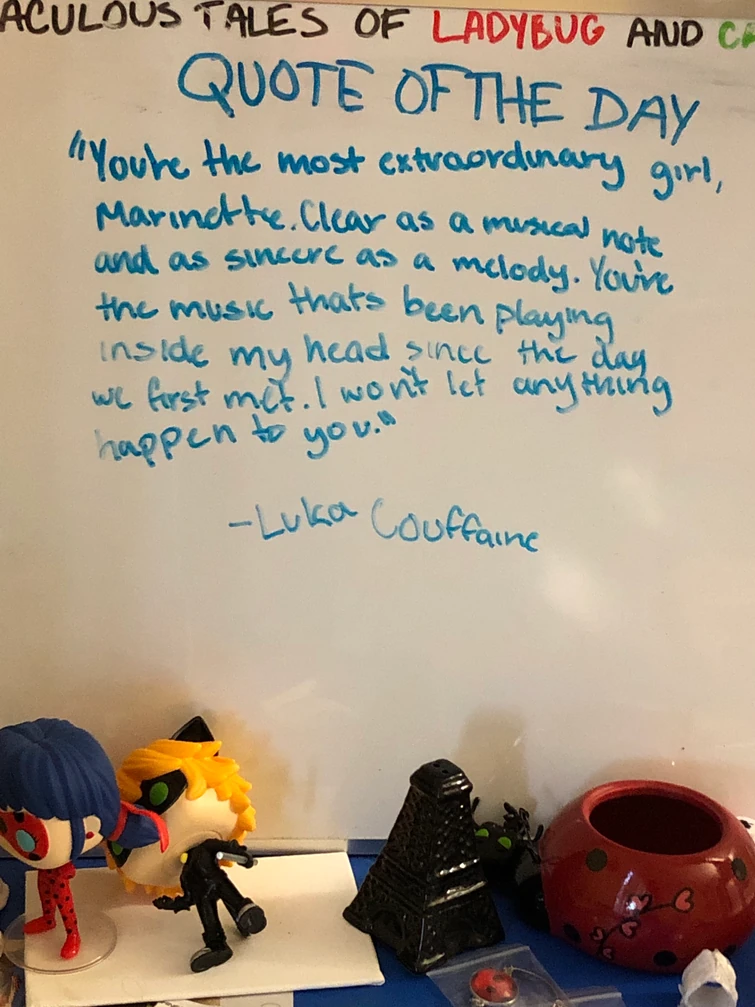 ACULOUS TALES OF LADYBUG AND CA
QUOTE OF THE DAY
"You're the most extraordinary girl,
Marinette. Clear as a musical note
and as sincere as a melody. You're
the music thats been playing
inside my head since the day
we first met. I won't let anything
happen to you."
-Luka Couffaine